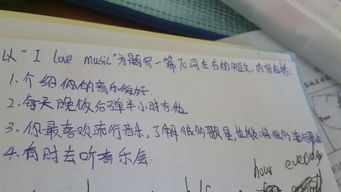 以"I love music"为题写一篇70词左右的短文,内容包括
1.介绍你的音乐爱好
2.每天晚饭后弹半小时吉他
3.你最喜欢流行音乐,了解很多歌星,也能唱很多流行歌曲
4.有时去听音乐会
hour everyday